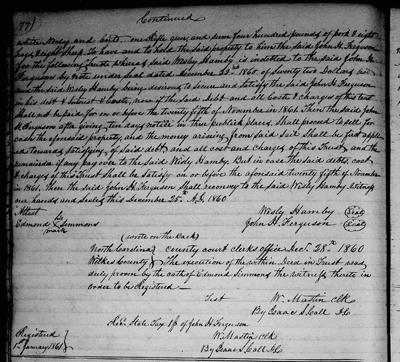 77)
Continued
white Nosly and carts, one Rifle gun, and seven four hundred pounds of pork & eight
hogs & eight sheep. To have and to hold the said property to him the said John H. Ferguson
for the following trust where as said Wesly Hamby is indebted to the said John H.
Ferguson by note under seal dated December 25th 1860 of Seventy two Dollars
and the said Wesly Hamby being desirous to secure and satisfy the said John H. Ferguson
in his debt & interest & costs, now if the said debt and all costs & charges of this trust
shall not be paid for on or before the twenty fifth of November in 1861 Then the said John
H. Ferguson after giving ten days notice in three publick places, shall proceed to sell for
cash the aforesaid property, and the money arising from said sale shall be first applied
towards satisfying of said debt and all cost and charges of this Trust, and the
remainder if any pay over to the said Wesly Hamby. But in case the said debts, cost
& charges of this Trust shall be satisfy on or before the aforesaid twenty fifth of November
in 1861, then the said John H Ferguson shall reconvey to the said Wesly Hamby Witness
our hands and seals this December 25th A.D. 1860
Attest
Edmond his X mark Simmons
Wesly Hamby (Seal)
John H. Ferguson (Seal)
(wrote on the back)
North Carolina County court clerks office Dec. 28th 1860
Wilkes County } The execution of the within Deed in Trust was
duly proven by the oath of Edmond Simmons the witness thereto in
order to be Registered
Test W. Mastin clk
By Isaac S. Call D.C.
Rec. State Tax of John H Ferguson
W. Mastin clk
By Isaac S. Call D.C.
Registered
1st January 1861